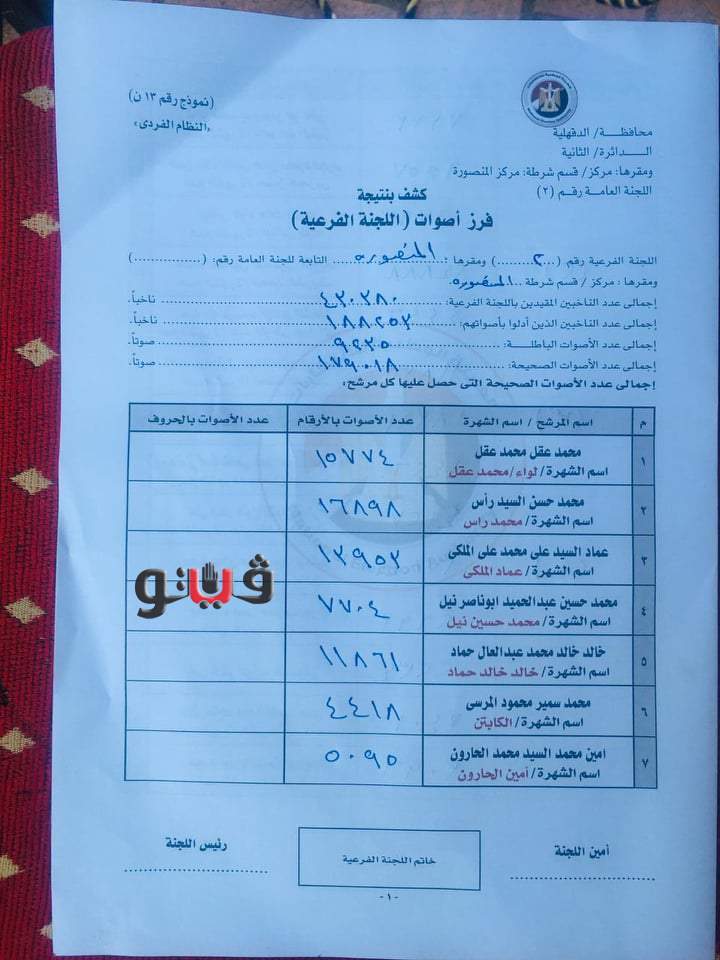 (نموذج رقم ١٣ ن)
«النظام الفردى»
محافظـــة/ الدقهلية
الـــــدائرة/ الثانية
ومقرها: مركز/ قسم شرطة: مركز المنصورة
اللجنة العامة رقم (٢)
كشف بنتيجة
فرز أصوات (اللجنة الفرعية)
اللجنة الفرعية رقم (...٢...) ومقرها :... المنصوره ... التابعة للجنة العامة رقم: (...............)
ومقرها : مركز / قسم شرطة .. المنصوره.
إجمالى عدد الناخبين المقيدين باللجنة الفرعية: ٤٢٠٢٨٠ ناخباً.
إجمالى عدد الناخبين الذين أدلوا بأصواتهم: ١٨٨٢٥٣ ناخباً.
إجمالى عدد الأصوات الباطلـــة: ٩٢٣٥ صوتاً.
إجمالى عدد الأصوات الصحيحة: ١٧٩٠١٨ صوتاً.
إجمالى عدد الأصوات الصحيحة التى حصل عليها كل مرشح:
م اسم المرشح / اسم الشهرة عدد الأصوات بالأرقام عدد الأصوات بالحروف
١ محمد عقل محمد عقل ١٥٧٧٤
اسم الشهرة/ لواء/محمد عقل
٢ محمد حسن السيد رأس ١٦٨٩٨
اسم الشهرة/ محمد راس
٣ عماد السيد على محمد على الملكى ١٢٩٥٢
اسم الشهرة/ عماد الملكى
ڤيتو
٤ محمد حسين عبدالحميد ابوناصر نيل ٧٧٠٤
اسم الشهرة/ محمد حسين نيل
٥ خالد خالد محمد عبدالعال حماد ١١٨٦١
اسم الشهرة/ خالد خالد حماد
٦ محمد سمير محمود المرسى ٤٤١٨
اسم الشهرة/ الكابتن
٧ امين محمد السيد محمد الحارون ٥٠٩٥
اسم الشهرة/ أمين الحارون
أمين اللجنة
خاتم اللجنة الفرعية
رئيس اللجنة
-١-